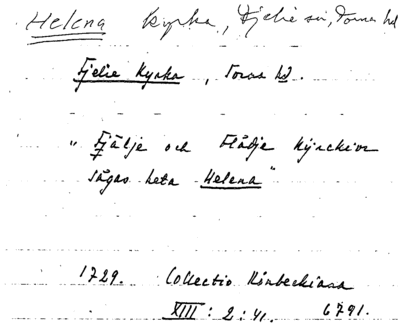 Helena Kyrka, Fjelie sn, Torna hd
Fjelie Kyrka, Torna hd.
"Fjälje och Flädje Kyrckior
sägas heta Helena"
1729. Collectio Rönbeckiana
XIII: 2: 41. 6791.